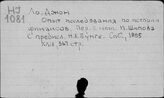 HJ
1081
Ло, Джон
Опыт исследования по истории
финансов. Пер. с нем. И. Шипова
С предисл. Н.Х. Бунге. СПб, 1895
XVII 367 стр.